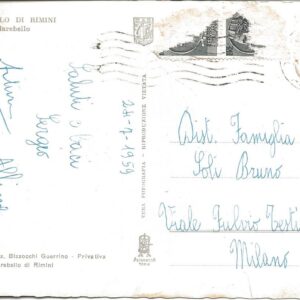 LO DI RIMINI
Marebello
Saluti e baci
Sergio
24-7-1959
VERA FOTOGRAFIA - RIPRODUZIONE VIETATA
Dist. Famiglia
Soli Bruno
Viale Fulvio Testi
Milano
Bizzocchi Guerrino - Privativa
Marebello di Rimini